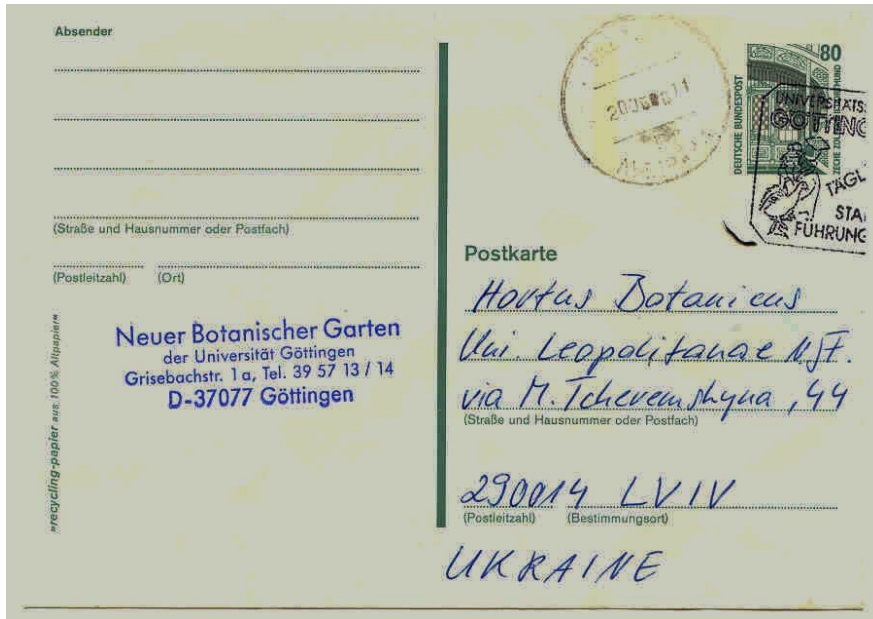 Absender
(Straße und Hausnummer oder Postfach)
(Postleitzahl) (Ort)
»recycling-papier aus 100% Altpapier«
Neuer Botanischer Garten
der Universität Göttingen
Grisebachstr. 1a, Tel. 39 57 13 / 14
D-37077 Göttingen
80
DEUTSCHE BUNDESPOST
UNIVERSITÄTS
GÖTTING
TÄGL
STA
FÜHRUNG
Postkarte
Hortus Botanicus
Uni. Leopolitanae
via M. Tcheremshyna, 44
(Straße und Hausnummer oder Postfach)
290014 LVIV
(Postleitzahl) (Bestimmungsort)
UKRAINE